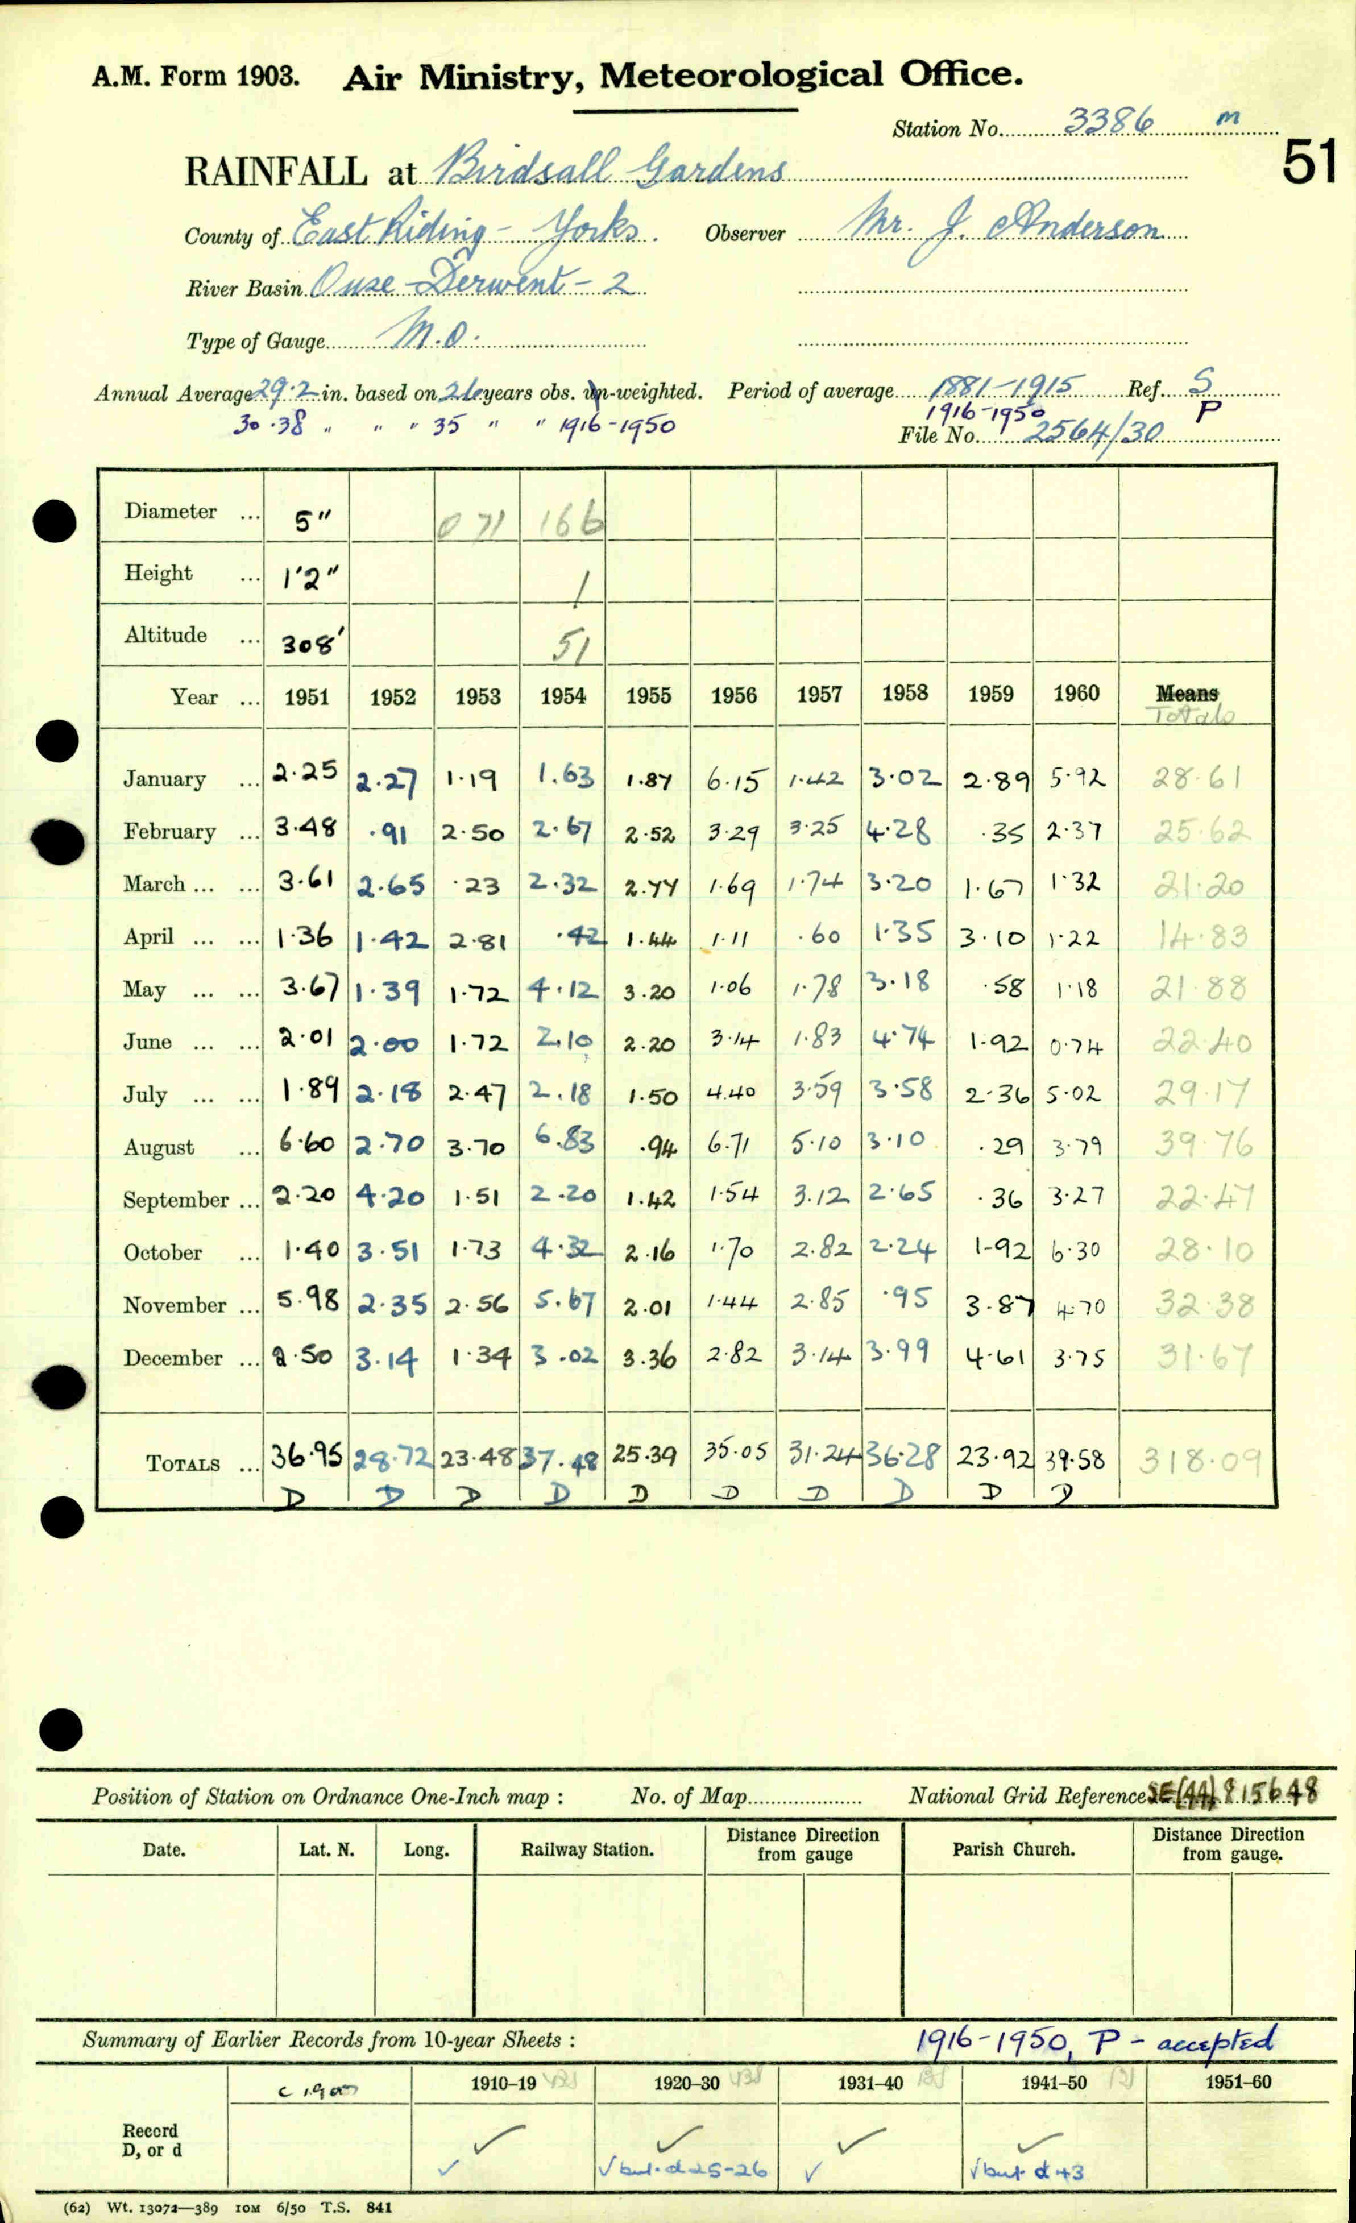 A.M. Form 1903. Air Ministry, Meteorological Office.
Station No. 3386 m
51
RAINFALL at Birdsall Gardens
County of East Riding - Yorks. Observer Mr. J. Anderson
River Basin Ouse - Derwent - 2
Type of Gauge M.O.
Annual Average 29.2 in. based on 26 years obs. un-weighted. Period of average 1881-1915 Ref. S
30.38 " " " 35 " " 1916-1950 1916-1950 P
File No. 2564/30
Diameter ... 5" 071 166
Height ... 1'2" 1
Altitude ... 308' 51
Year ... 1951 1952 1953 1954 1955 1956 1957 1958 1959 1960 Means
Totals
January ... 2.25 2.27 1.19 1.63 1.87 6.15 1.42 3.02 2.89 5.92 28.61
February ... 3.48 .91 2.50 2.67 2.52 3.29 3.25 4.28 .35 2.37 25.62
March ... ... 3.61 2.65 .23 2.32 2.77 1.69 1.74 3.20 1.67 1.32 21.20
April ... ... 1.36 1.42 2.81 .42 1.44 1.11 .60 1.35 3.10 1.22 14.83
May ... ... 3.67 1.39 1.72 4.12 3.20 1.06 1.78 3.18 .58 1.18 21.88
June ... ... 2.01 2.00 1.72 2.10 2.20 3.14 1.83 4.74 1.92 0.74 22.40
July ... ... 1.89 2.18 2.47 2.18 1.50 4.40 3.59 3.58 2.36 5.02 29.17
August ... 6.60 2.70 3.70 6.83 .94 6.71 5.10 3.10 .29 3.79 39.76
September ... 2.20 4.20 1.51 2.20 1.42 1.54 3.12 2.65 .36 3.27 22.47
October ... 1.40 3.51 1.73 4.32 2.16 1.70 2.82 2.24 1.92 6.30 28.10
November ... 5.98 2.35 2.56 5.67 2.01 1.44 2.85 .95 3.87 4.70 32.38
December ... 2.50 3.14 1.34 3.02 3.36 2.82 3.14 3.99 4.61 3.75 31.67
TOTALS ... 36.95 28.72 23.48 37.48 25.39 35.05 31.24 36.28 23.92 39.58 318.09
D D D D D D D D D D
Position of Station on Ordnance One-Inch map : No. of Map National Grid Reference SE(44) 815648
Date. Lat. N. Long. Railway Station. Distance from Direction gauge Parish Church. Distance from Direction gauge.
Summary of Earlier Records from 10-year Sheets : 1916-1950, P - accepted
c 1900 1910-19 1920-30 1931-40 1941-50 1951-60
Record
D, or d
✓ ✓ ✓ ✓
✓ ✓ but d 25-26 ✓ ✓ but d 43
(62) Wt. 13072—389 10M 6/50 T.S. 841